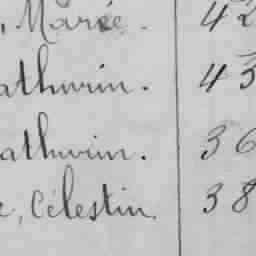 , Marie. 42
athurin. 43
athurin. 36
e, Célestin. 38